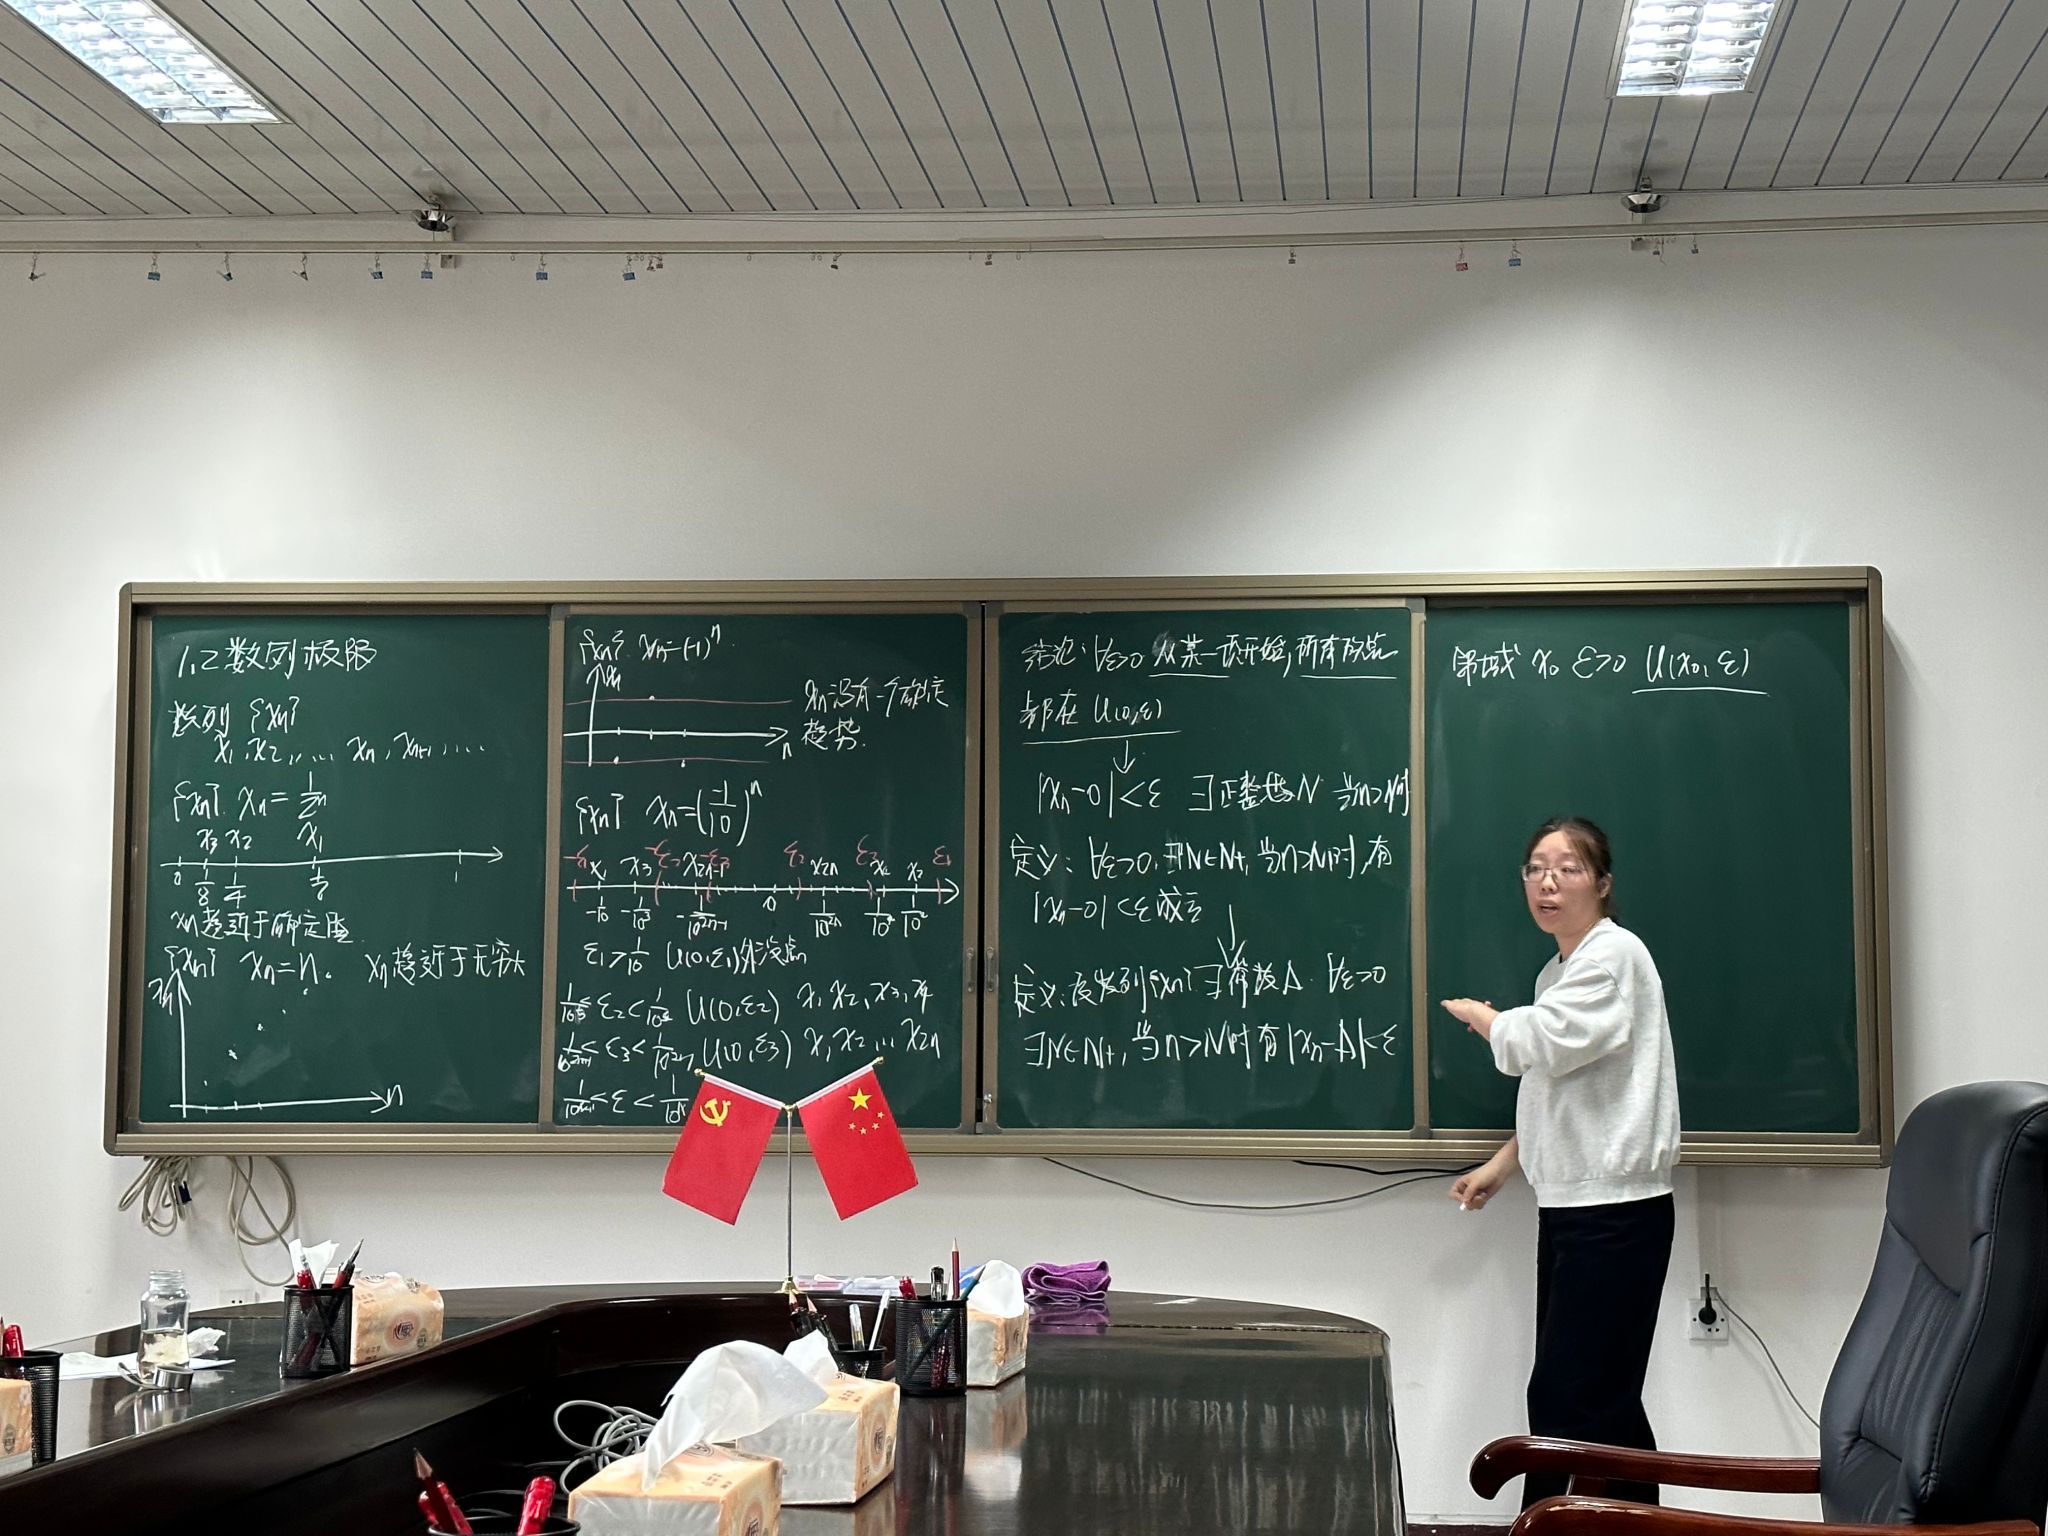 1.2 数列极限
数列 {xn}
x1, x2, ... xn, xn+1, ...
{xn}. xn = 1/2^n
x3 x2 x1
0 1/8 1/4 1/2 1
xn趋近于确定值
{xn} xn = n. xn趋近于无穷大
xn
n
{xn}. xn = (-1)^n
xn
n
xn没有一个确定
趋势.
{xn} xn = (-1/10)^n
-ε1 x1 x3 -ε2 x2n-1 -ε3 ε3 x2n ε2 x4 x2 ε1
-1/10 -1/10^3 -1/10^2n-1 0 1/10^2n 1/10^4 1/10^2
ε1 > 1/10 U(0, ε1)外没点
ε2 < U(0, ε2) x1 x2, x3, 在
< ε3 < U(0, ε3) x1 x2 ... x2n
< ε <
结论: ∀ε>0 从某一项开始, 所有的点
都在 U(0, ε)
↓
|xn-0| < ε ∃正整数N 当n>N时
定义: ∀ε>0, ∃N∈N+, 当n>N时, 有
|xn-0| < ε 成立
↓
定义: 设数列{xn} ∃常数A. ∀ε>0
∃N∈N+, 当n>N时 有 |xn-A|<ε
邻域 x0 ε>0 U(x0, ε)